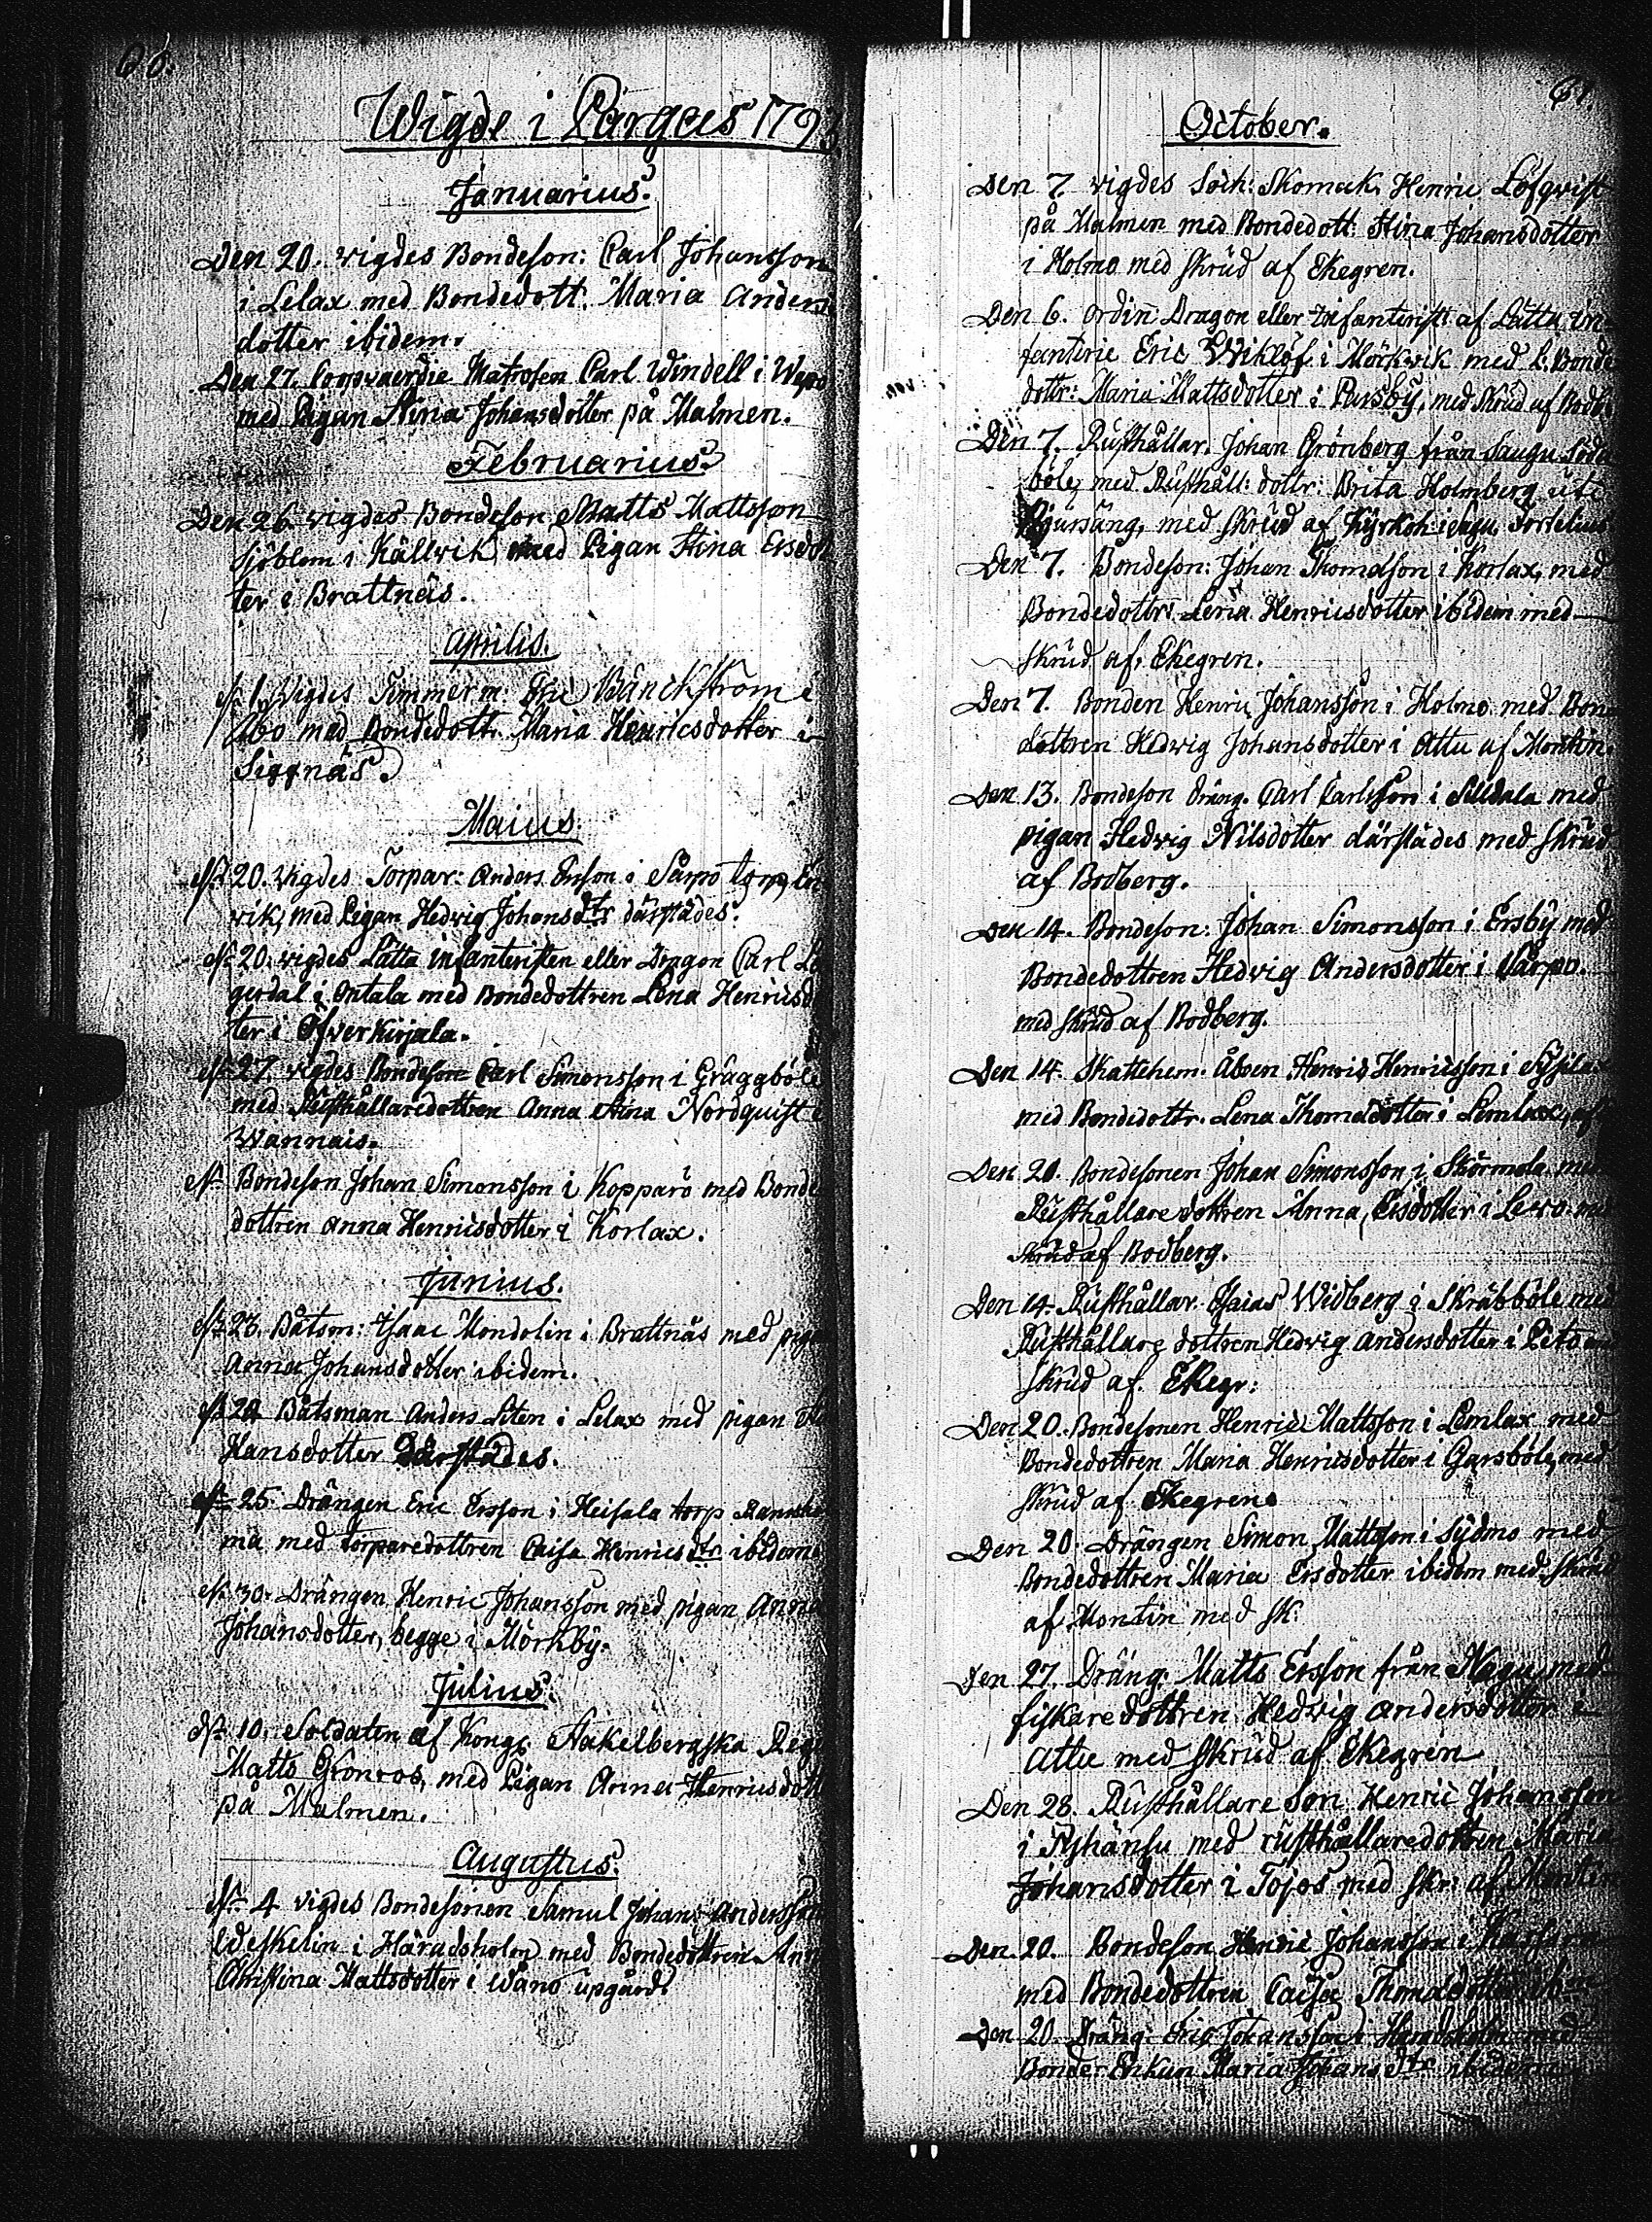 60.
Wigde i Pargas 179
Januarius.
Den 20. vigdes Bondeson: Carl Johansson
i Lelax med Bondedott. Maria Anders
dotter ibidem.
Den 27. Coopvaerdie Matrosen Carl Windell i
med Pigan Stina Johansdotter på Malmen.
Februarius.
Den 26 vigdes Bondeson Matts Mattsson
Sjöblom i Källvik med Pigan Stina Ersdot
ter i Brattnäs.
Aprilis.
d. 1. Vigdes Timmerm. Eric Bänckström i
Åbo med Bondedottr. Maria Henricsdotter i
Siggnäs.
Maius.
d. 20. vigdes Torpar: Anders Ersson i Sårpo torp
vik, med Pigan Hedvig Johansdtr därstädes.
d. 20. vigdes Lätta infanteristen eller Dragon Carl
gerdal i Ontala med Bondedottren Lena Henricsd
ter i Öfverkirjala.
d. 27 vigdes Bondeson Carl Simonsson i Gräggböle
med Rusthållaredottren Anna Stina Nordquist i
Wannais.
d. Bondeson Johan Simonsson i Kopparö med Bonde
dottren Anna Henricsdotter i Korlax.
Junius.
d. 23. Båtsm: Isaac Mondolin i Brattnäs med pig
Anna Johansdotter ibidem.
d. 24 Båtsman Anders Liten i Lelax med pigan
Hansdotter därstädes.
d. 25. Drängen Eric Ersson i Heisala torp
ma med torparedottren Caisa Henricsdtr ibidem
d. 30. Drängen Henric Johansson med pigan Anna
Johansdotter, begge i Mörkby.
Julius.
d. 10. Soldaten af Kongl. Stakelbergska Reg
Matts Grönroos, med Pigan Anna Henricsdott
på Malmen.
Augustus.
d. 4 vigdes Bondesonen Samul Johan Andersson
Weskelin i Häradsholm med Bondedottren Ann
Christina Mattsdotter i Wånå upgård.
61.
October.
Den 7. vigdes Soch: Skomak. Henric Löfqvist
på Malmen med Bondedott: Stina Johansdotter
i Holmo med skrud af Ekegren.
Den 6. ordin Dragon eller infanterist af Lätta in
fanterie Eric Wiklöf i Mörkvik med L. Bonde
dottr: Maria Mattsdotter i Pursby, med Skrud af Bodb
Den 7. Rusthållar. Johan Grönberg från Saugu Söder
böle, med Rusthåll: dottr: Brita Holmberg uti
med skrud af Kyrkoh: i Sagu
Den 7. Bondeson: Johan Thomasson i Korlax, med
Bondedottr: Lena Henricsdotter ibidem med
skrud af Ekegren.
Den 7. Bonden Henric Johansson i Holmo med Bon
dottren Hedwig Johansdotter i Attu af Montin.
Den 13. Bondeson dräng. Carl Carlsson i Silldala med
pigan Hedvig Nilsdotter därstädes med skrud
af Bodberg.
Den 14. Bondeson: Johan Simonsson i Ersby med
Bondedottren Hedvig Andersdotter i Vårpo.
med skrud af Bodberg.
Den 14. Skattehem. Åboen Henric Henricsson i Sysila
med Bondedottr. Lena Thomasdotter i Lemlax, af
Den 20. Bondesonen Johan Simonsson i Skärmola med
Rusthållaredottren Anna, Ersdotter i Levo med
skrud af Bodberg.
Den 14. Rusthållar. Esaias Widberg i Skräbböle med
Rusthållare dottren Hedvig Andersdotter i
skrud af Ekegr:
Den 20. Bondesonen Henric Mattsson i Lemlax med
Bondedottren Maria Henricsdotter i Garsböle, med
skrud af Ekegren.
Den 20. Drängen Simon Mattsson i Sydmo med
Bondedottren Maria Ersdotter ibidem med skrud
af Montin med sk:
Den 27. Dräng. Matts Ersson från Nagu med
fiskaredottren Hedvig Andersdotter i
Attu med skrud af Ekegren
Den 28. Rusthållare Son Henric Johansson
i Tyshänsu med rusthållaredottren Maria
Johansdotter i Tojos med skr: af Montin
Den 20. Bondeson Henric Johansson i
med Bondedottren Caisa Thomasdotter
Den 20. Dräng: Eric Johansson i Haradsholm med
Bonde: Enkan Maria Johansdtr ibidem